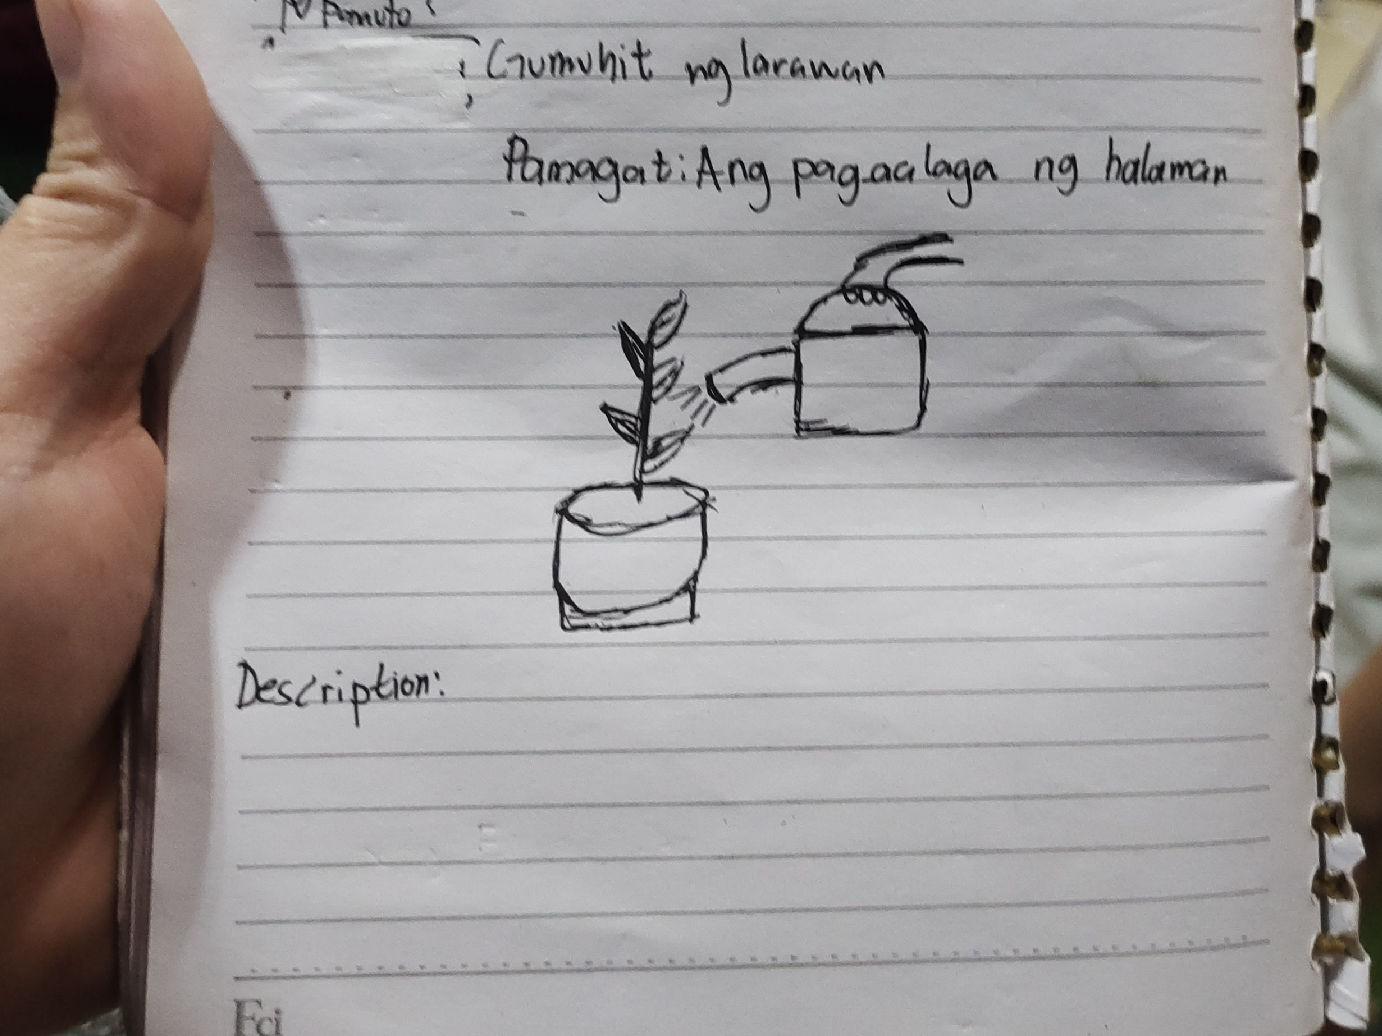 Gumuhit ng larawan
Pamagat: Ang pagaalaga ng halaman
Description:
Fci